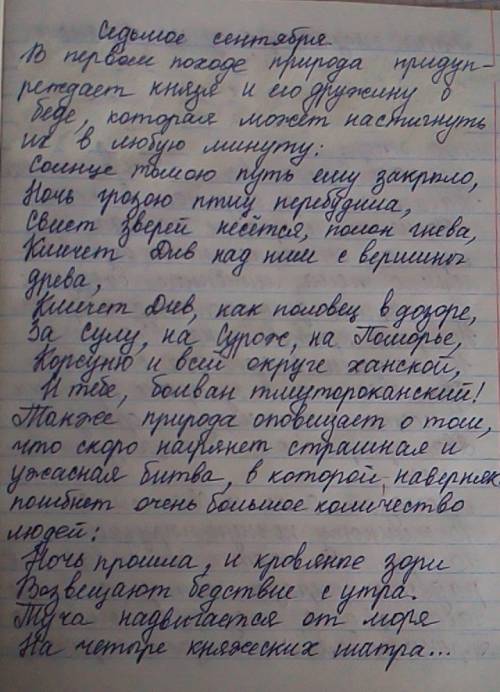 Седьмое сентября
В первом походе природа придуп-
реждает князя и его дружину о
беде, которая может настигнуть
их в любую минуту:
Солнце тьмою путь ему закрыло,
Ночь грозою птиц перебудила,
Свист зверей несётся, полон гнева,
Кличет Див над ним с вершины
древа,
Кличет Див, как половец в дозоре,
За Сулу, на Сурож, на Поморье,
Корсуню и всей округе ханской,
И тебе, болван тмутороканский!
Также природа оповещает о том,
что скоро нагрянет страшная и
ужасная битва, в которой, наверняк
погибнет очень большое количество
людей:
Ночь прошла, и кровяные зори
Возвещают бедствие с утра.
Туча надвигается от моря
На четыре княжеских шатра...